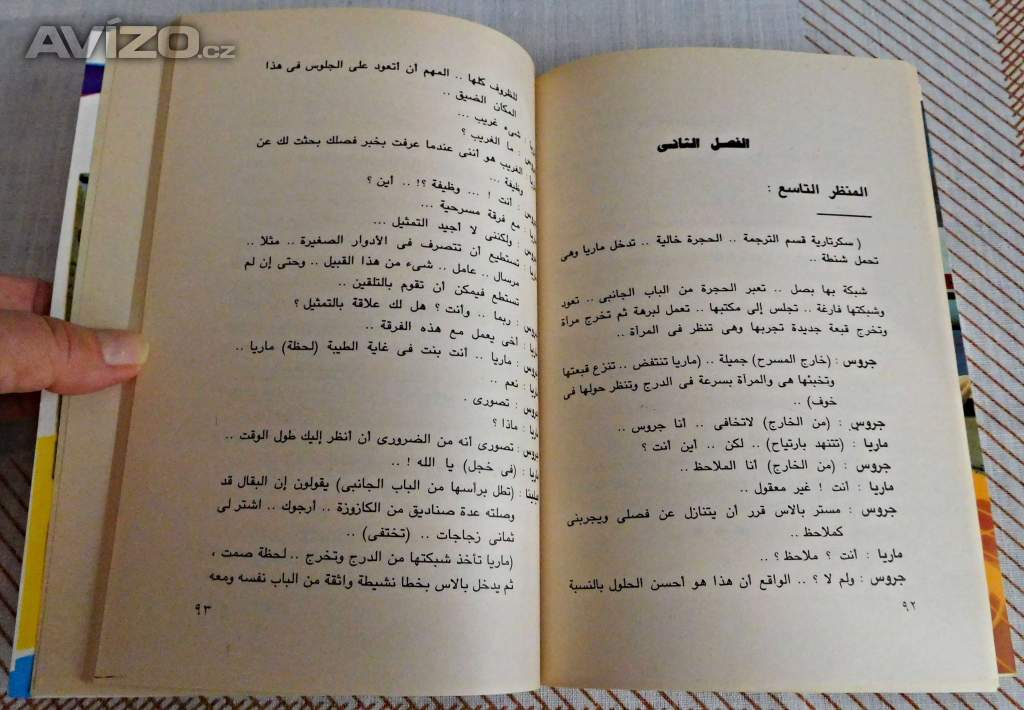 AVÍZO.cz
الفصل الثانى
المنظر التاسع :
( سكرتارية قسم الترجمة .. الحجرة خالية .. تدخل ماريا وهى
تحمل شنطة ..
شبكة بها بصل .. تعبر الحجرة من الباب الجانبى .. تعود
وشبكتها فارغة .. تجلس إلى مكتبها .. تعمل لبرهة ثم تخرج مرآة
وتخرج قبعة جديدة تجربها وهى تنظر فى المرآة ..
جروس : (خارج المسرح) جميلة .. (ماريا تنتفض .. تنزع قبعتها
وتخبئها هى والمرآة بسرعة فى الدرج وتنظر حولها فى
خوف) ..
جروس : (من الخارج) لاتخافى .. انا جروس ..
ماريا : (تتنهد بارتياح) .. لكن .. أين أنت ؟
جروس : (من الخارج) انا الملاحظ ..
ماريا : أنت ! غير معقول ..
جروس : مستر بالاس قرر أن يتنازل عن فصلى ويجربنى
كملاحظ ..
ماريا : أنت ؟ ملاحظ ؟ ..
جروس : ولم لا ؟ .. الواقع أن هذا هو أحسن الحلول بالنسبة
٩٢
للظروف كلها .. المهم أن أتعود على الجلوس فى هذا
المكان الضيق ..
شىء غريب ...
: ما الغريب ؟
الغريب هو أننى عندما عرفت بخبر فصلك بحثت لك عن
وظيفة ...
: أنت ! ... وظيفة ؟! .. أين ؟
مع فرقة مسرحية ...
: ولكننى لا أجيد التمثيل ...
تستطيع أن تتصرف فى الأدوار الصغيرة .. مثلا ..
مرسال .. عامل .. شىء من هذا القبيل .. وحتى إن لم
تستطع فيمكن أن تقوم بالتلقين ..
: ربما .. وأنت ؟ هل لك علاقة بالتمثيل ؟
أخى يعمل مع هذه الفرقة ..
: ماريا .. أنت بنت فى غاية الطيبة (لحظة) ماريا ..
: نعم ..
: تصورى .
: ماذا ؟
: تصورى أنه من الضرورى أن أنظر إليك طول الوقت ..
: (فى خجل) يا الله ! ..
: (تطل برأسها من الباب الجانبى) يقولون إن البقال قد
وصلته عدة صناديق من الكازوزة .. أرجوك .. اشتر لى
ثمانى زجاجات .. (تختفى) ..
(ماريا تأخذ شبكتها من الدرج وتخرج .. لحظة صمت ،
ثم يدخل بالاس بخطا نشيطة واثقة من الباب نفسه ومعه
٩٣